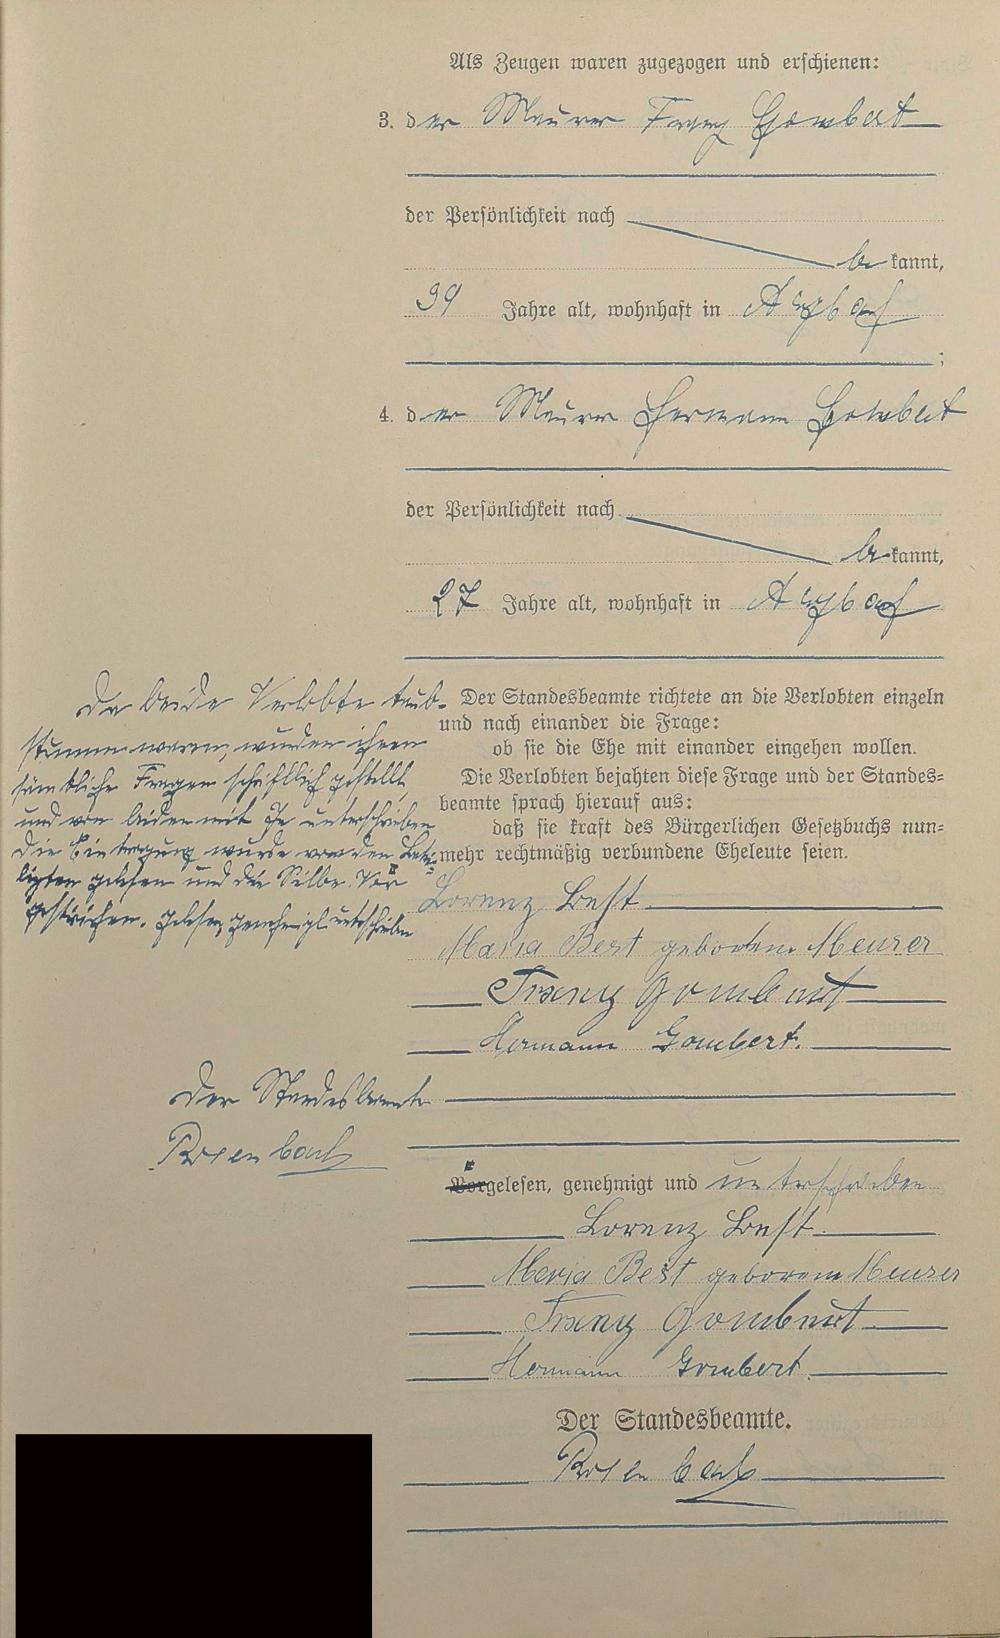 Als Zeugen waren zugezogen und erschienen:
3. der Maurer Franz Gombert
der Persönlichkeit nach
be kannt,
39 Jahre alt, wohnhaft in Arzbach
;
4. der Maurer Hermann Gombert
der Persönlichkeit nach
be kannt,
27 Jahre alt, wohnhaft in Arzbach
Da beide Verlobte taub-
stumm waren, wurden ihnen
sämtliche Fragen schriftlich gestellt,
und von beiden mit Ja unterschrieben
Die Eintragung wurde von den Betei-
ligten gelesen und die Silbe "Vor"
gestrichen. Gelesen, genehmigt unterschrieben
Der Standesbeamte
Rosenbach
Der Standesbeamte richtete an die Verlobten einzeln
und nach einander die Frage:
ob sie die Ehe mit einander eingehen wollen.
Die Verlobten bejahten diese Frage und der Standes=
beamte sprach hierauf aus:
daß sie kraft des Bürgerlichen Gesetzbuchs nun=
mehr rechtmäßig verbundene Eheleute seien.
Lorenz Best
Maria Best geborene Meurer
Franz Gombert
Hermann Gombert.
Vorgelesen, genehmigt und unterschrieben
Lorenz Best
Maria Best geborene Meurer
Franz Gombert
Hermann Gombert.
Der Standesbeamte.
Rosenbach